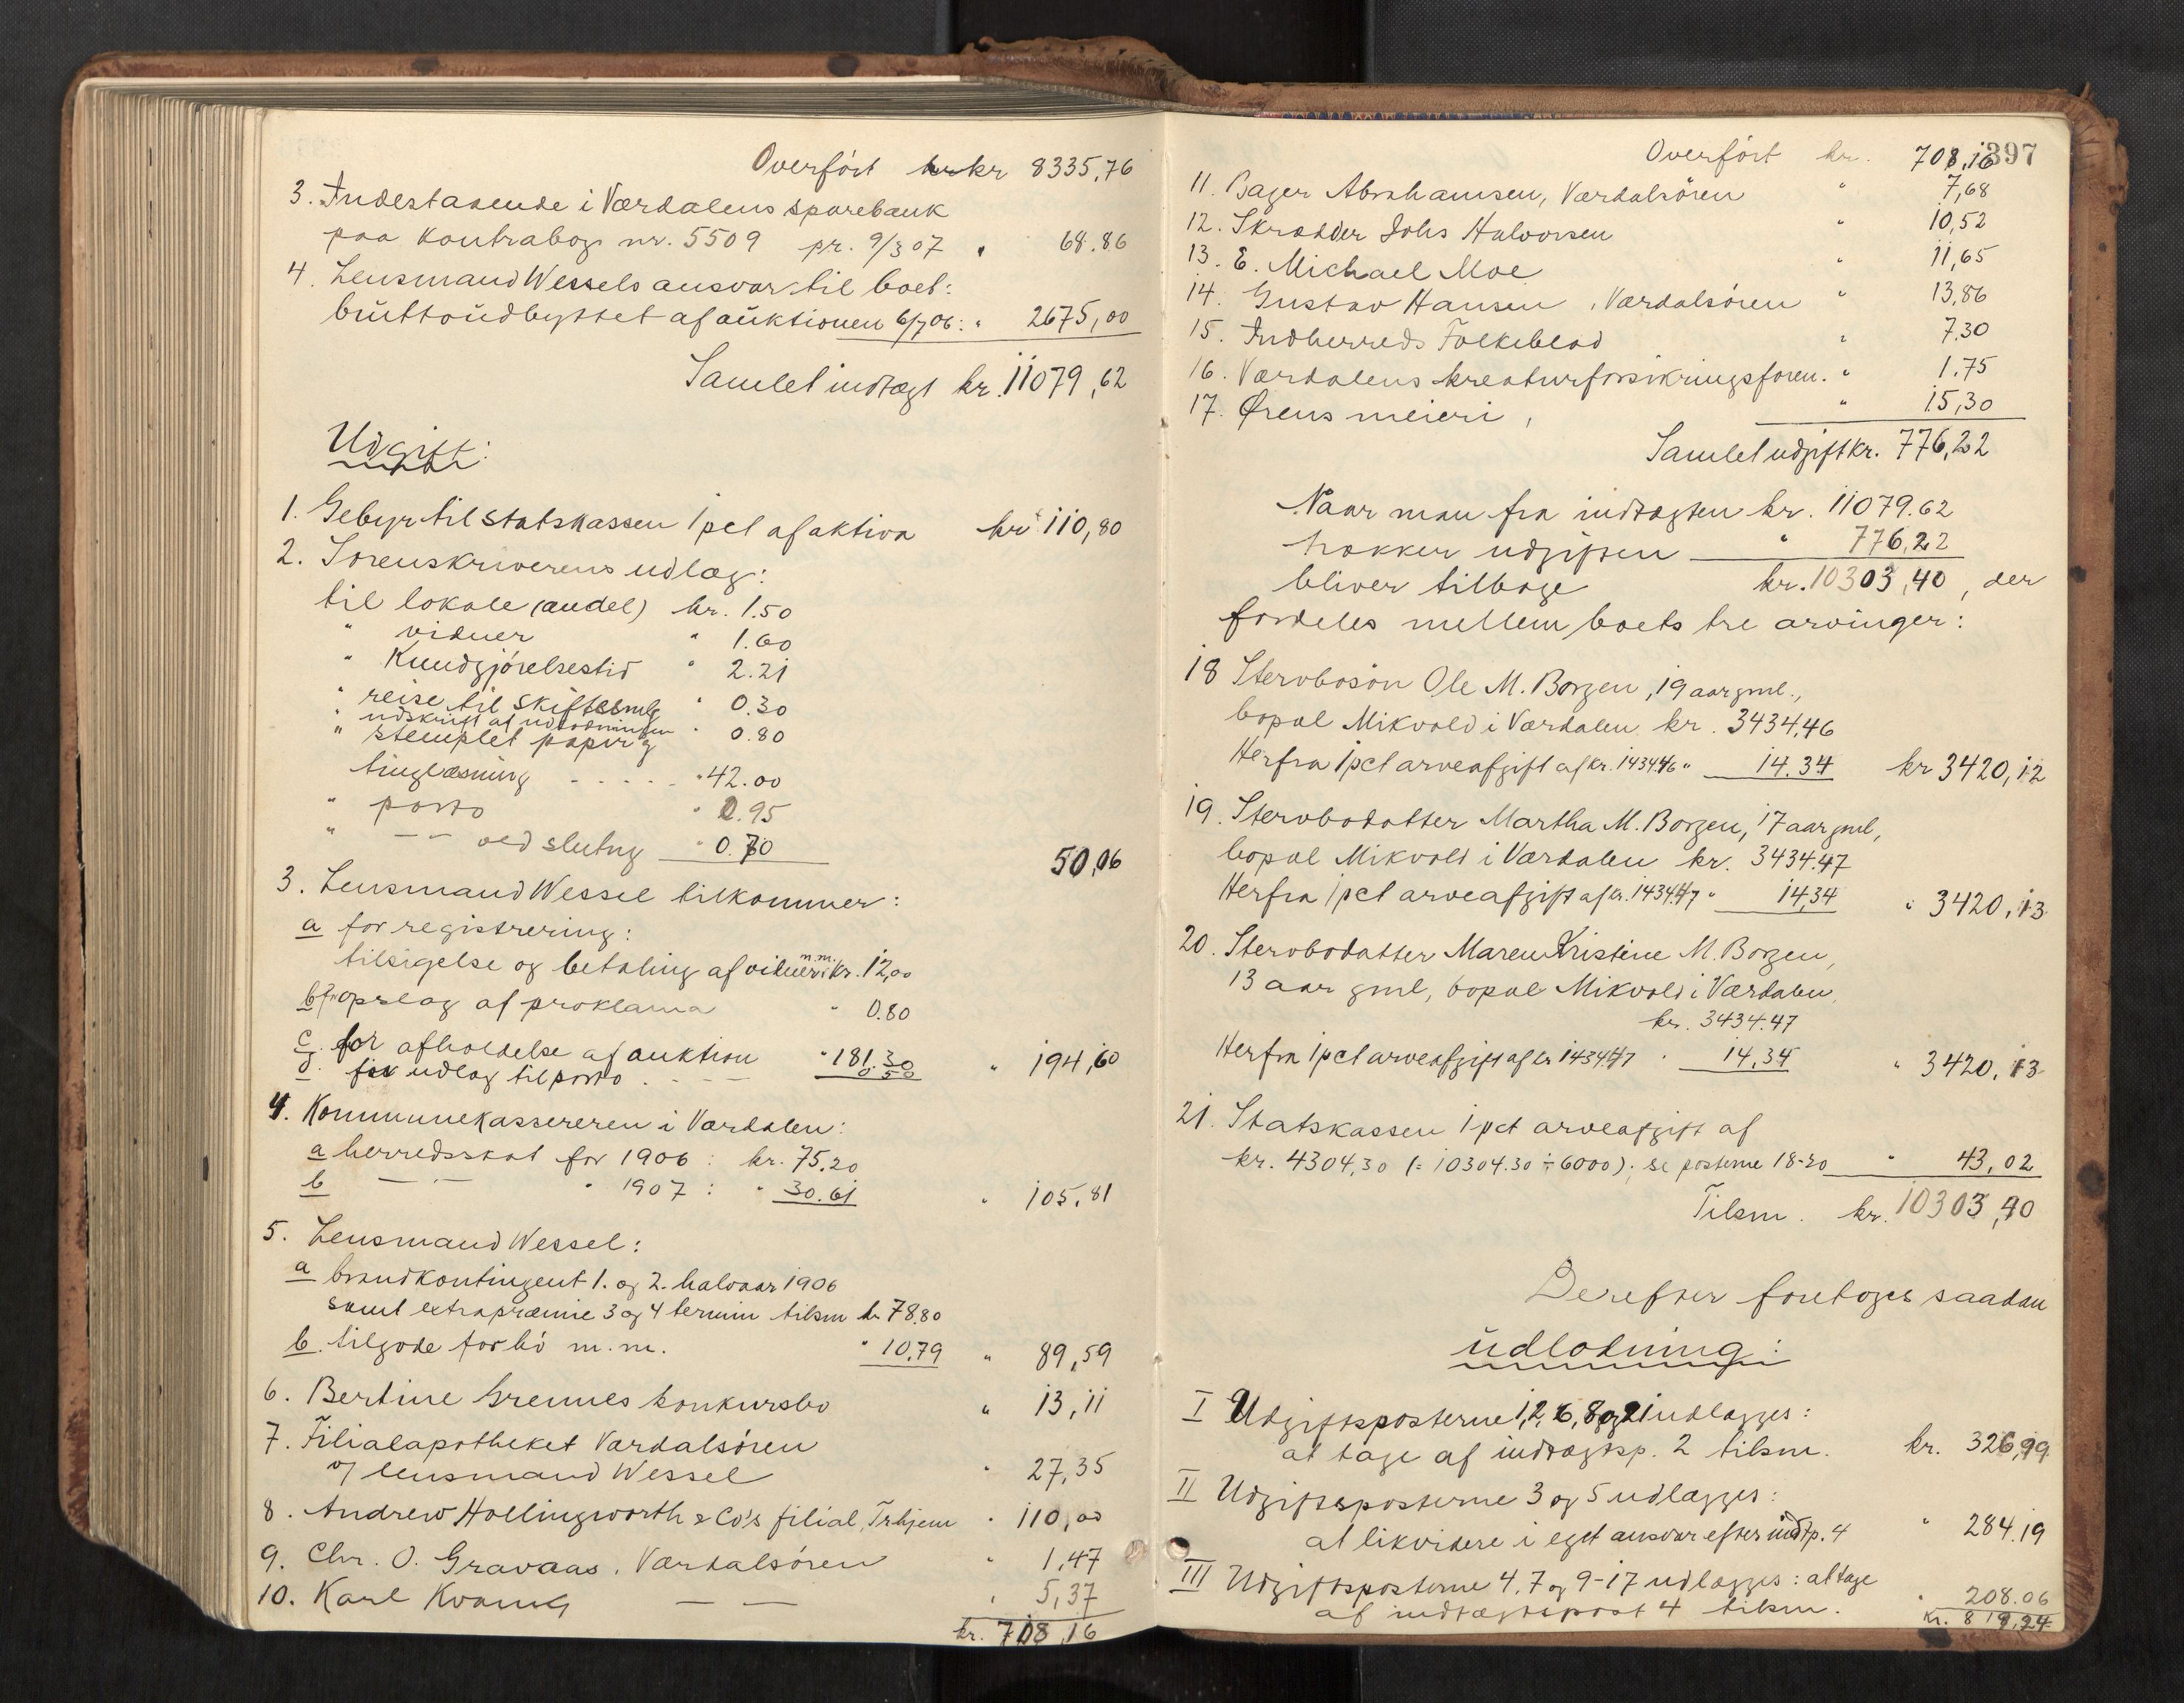 Overført kr 8335,76
3. Indestaaende i Værdalens sparebank
paa Kontrabog nr. 5509 pr. 9/3 07 " 68.86
4. Lensmand Wessels ansvar til boet:
bruttoudbyttet af auktionen 6/7 06: " 2675,00
Samlet indtægt kr. 11079,62
Udgift:
1. Gebyr til Statskassen 1 pct af aktiva kr 110,80
2. Sorenskriverens udlæg:
til lokale (andel) kr. 1.50
" vidner " 1.60
" Kundgjørelsestid " 2.21
" reise til skiftesml " 0.30
" udskrift af udlodningen
" stemplet papir " 0.80
tinglæsning - - - - - " 42.00
" porto " 0.95
" — — ved slutng " 0.70
50,06
3. Lensmand Wessel tilkommer:
a for registrering:
tilsigelse og betaling af vidner m.m. kr. 12,00
b for opslag af proklama " 0.80
c. for afholdelse af auktion " 181.30
d. for udlæg til porto . - — 0 50 " 194,60
4. Kommunekassereren i Værdalen:
a herredsskat for 1906 : kr. 75.20
b — . — " 1907 : " 30.61 " 105,81
5. Lensmand Wessel:
a brandkontingent 1. og 2. halvaar 1906
samt extrapræmie 3 og 4 termin tilsm kr 78.80
b. tilgode for hø m.m. " 10,79 " 89,59
6. Bertine Grennes konkursbo " 13,11
7. Filialapotheket Værdalsøren
v/ lensmand Wessel " 27,35
8. Andrew Hollingworth & Co's filial, Trhjem " 110,00
9. Chr. O. Gravaas, Værdalsøren " 1,47
10. Karl Kvamg — — " 5,37
kr. 708,16
397
Overført kr. 708,16
11. Bager Abrahamsen, Værdalsøren " 7,68
12. Skrædder Johs Halvorsen 10,52
13. E. Michael Moe " 11,65
14. Gustav Hansen, Værdalsøren " 13,86
15. Indherreds Folkeblad " 7.30
16. Værdalens kreaturforsikringsforen. " 1.75
17. Ørens meieri, " 15,30
Samlet udgift kr. 776,22
Naar man fra indtægten kr. 11079.62
trækker udgiften " 776,22
bliver tilbage kr. 10303,40, der
fordeles mellem boets tre arvinger:
18 Stervbosøn Ole M. Borgen, 19 aar gml.,
bopæl Mikvold i Værdalen kr. 3434,46
Herfra 1 pct arveafgift af kr. 1434.46 " 14.34 kr 3420,12
19. Stervbodatter Martha M. Borgen, 17 aar gml,
bopæl Mikvold i Værdalen kr. 3434.47
Herfra 1 pct arveafgift af kr. 1434.47 " 14,34 " 3420,13
20. Stervbodatter Maren Kristine M. Borgen,
13 aar gml, bopæl Mikvold i Værdalen,
kr. 3434.47
Herfra 1 pct arveafgift af kr 1434.47 " 14,34 " 3420,13
21. Statskassen 1 pct arveafgift af
kr. 4304,30 (= 10304.30 ÷ 6000); se posterne 18-20 " 43,02
Tilsm. kr. 10303,40
Derefter foretoges saadan
udlodning:
I Udgiftsposterne 1, 2, 6, 8 og 21 udlægges:
at tage af indtægtsp. 2 tilsm. kr. 326,99
II Udgiftsposterne 3 og 5 udlægges:
at likvidere i eget ansvar efter indtp. 4 " 284.19
III Udgiftsposterne 4, 7 og 9-17 udlægges: at tage
af indtægtspost 4 tilsm. " 208.06
kr. 819,24